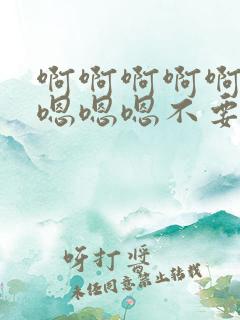 啊啊啊啊啊
嗯嗯嗯不要
呀打酱
未经同意禁止转载